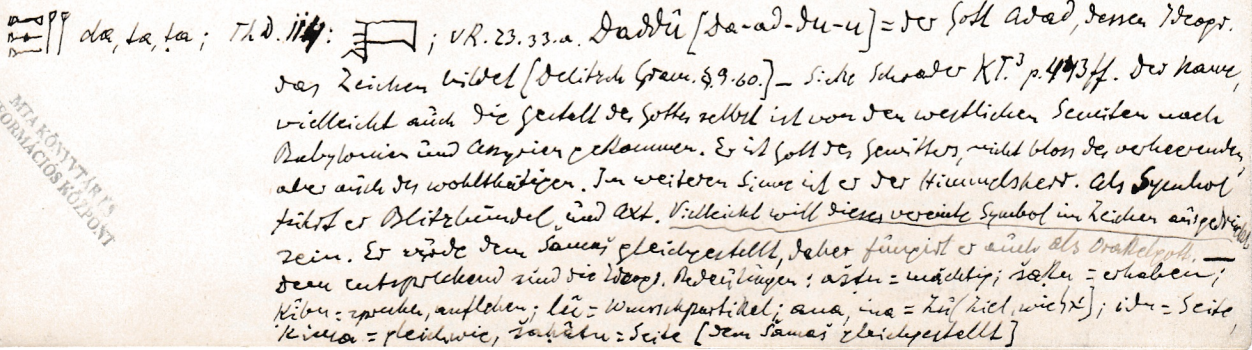 da, ṭa, ṭa; Th.D. 114: ; VR. 23. 33. a. Daddû [Da-ad-du-u] = der Gott Adad, dessen Ideogr.
das Zeichen bildet [Delitzsch Gram. §. 9. 60.] – Siehe Schrader KT.³ p. 443 ff. Der Name,
vielleicht auch die Gestalt des Gottes selbst ist von den westlichen Semiten nach
Babylonien und Assyrien gekommen. Er ist Gott des Gewitters, nicht bloss des verheerenden,
aber auch des wohlthätigen. Im weiteren Sinne ist er der Himmelsherr. Als Symbol
führt er Blitzbündel und Axt. Vielleicht will dieses vereinte Symbol im Zeichen ausgedrückt
sein. Er würde dem Šamaš gleichgestellt, daher fungirt er auch als Orakelgott. —
Dem entsprechend sind die Ideogr. Bedeutungen: = mächtig; = erhaben;
= sprechen, anflehen; lû = Wunschpartikel; ana, ina = zu [Ziel, ]; idu = Seite,
Kima = gleichwie, šaḫâtu = Seite [dem Šamaš gleichgestellt]
MTA KÖNYVTÁR ÉS
INFORMÁCIÓS KÖZPONT